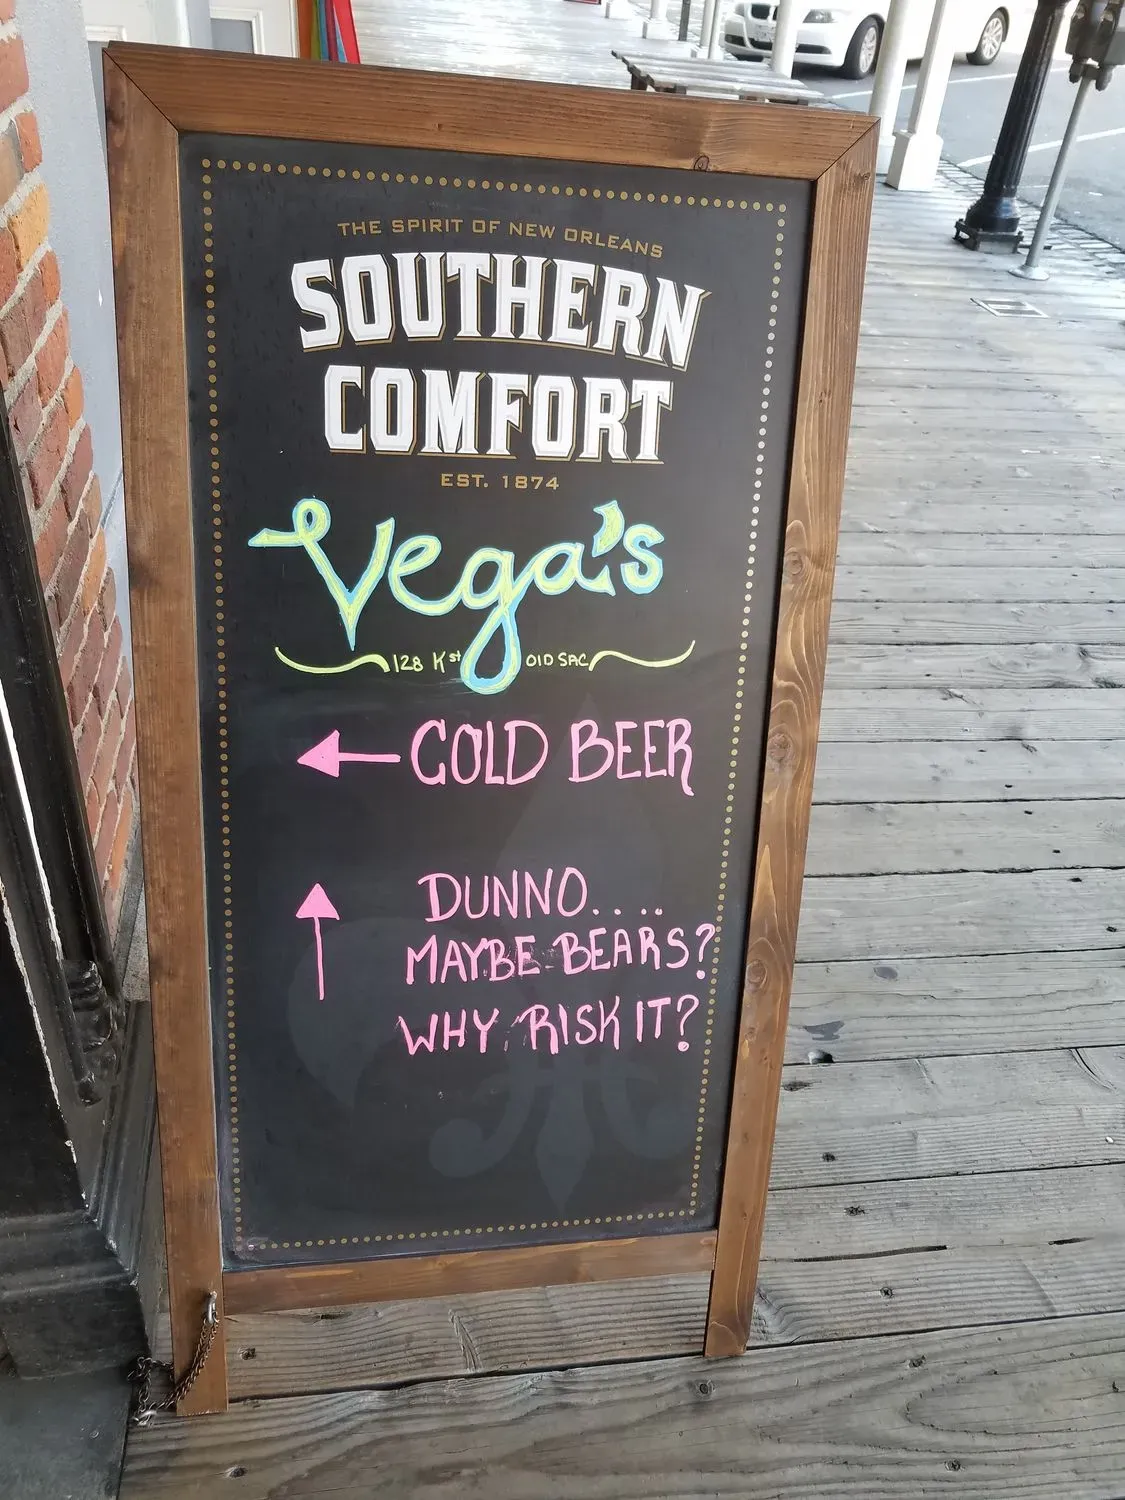 THE SPIRIT OF NEW ORLEANS
SOUTHERN
COMFORT
EST. 1874
Vega's
128 K st OlD SAC
COLD BEER
DUNNO.....
MAYBE BEARS?
WHY RISK IT?